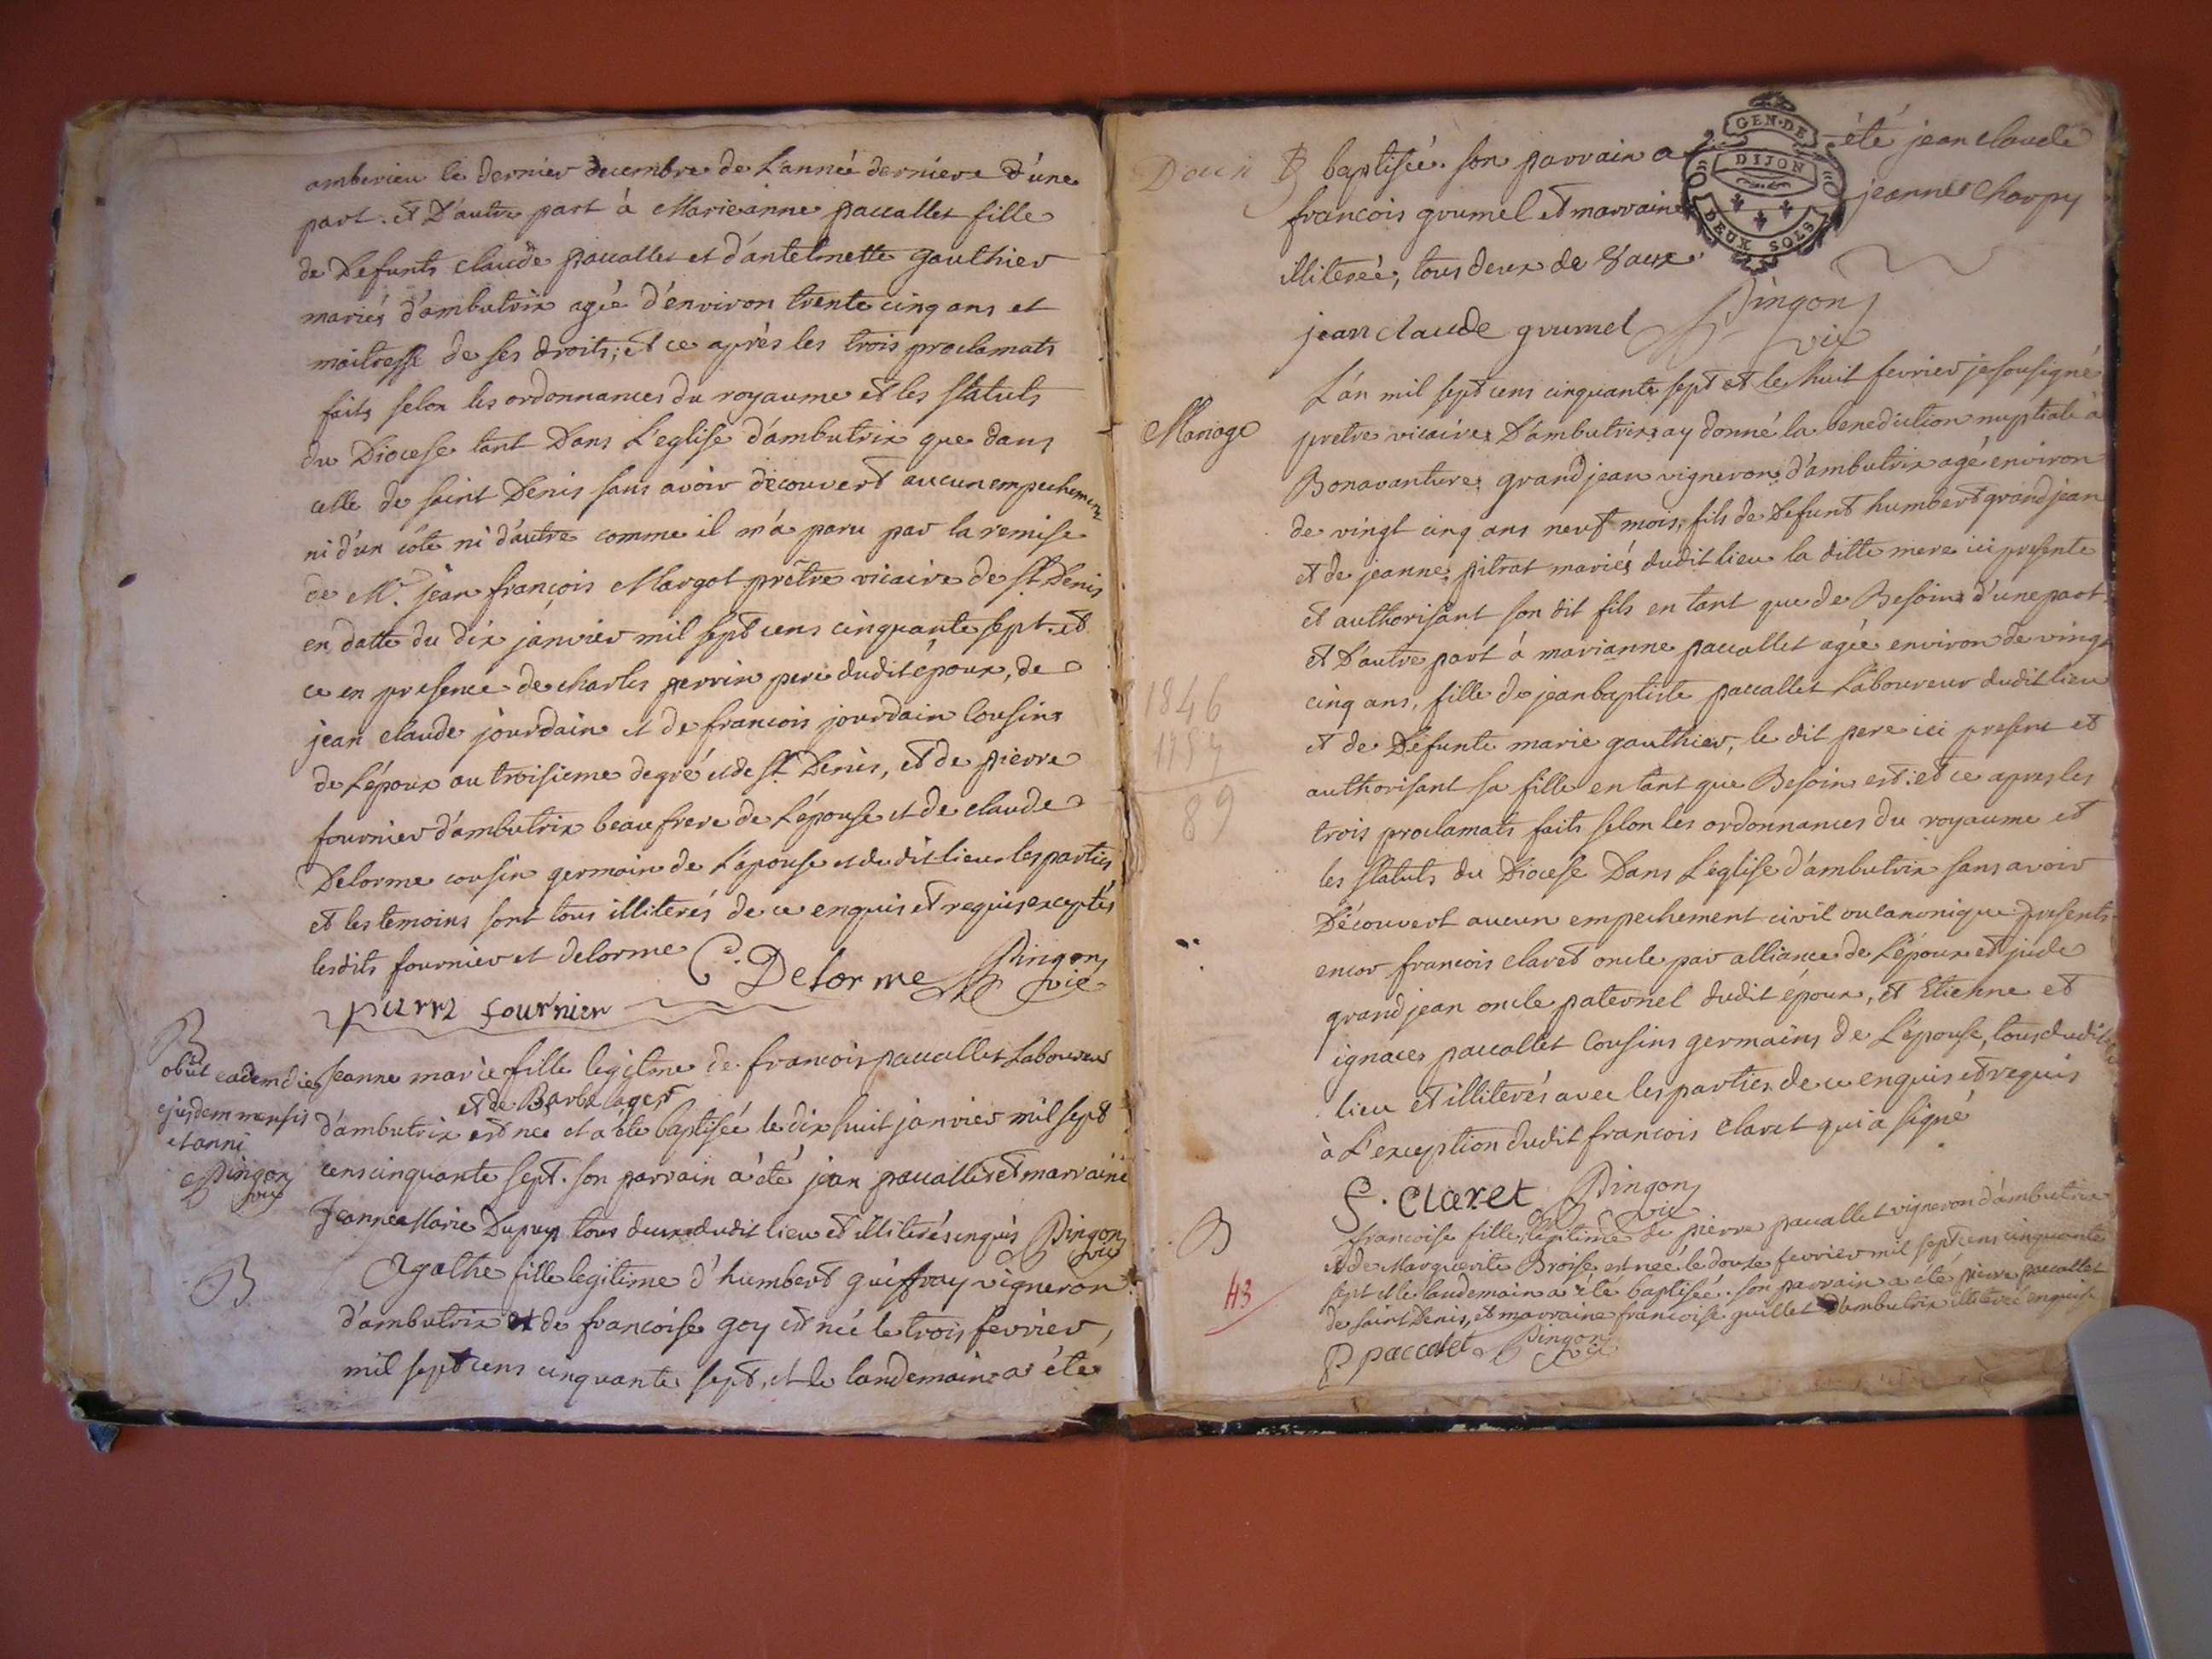 amberieu le dernier decembre de L'anneé derniere d'une
part. et D'autre part à Marieanne paccallet fille
de Defunts claude paccallet et d'antelmette gaulthier
mariés d'ambutrix ageé d'environ trente cinq ans et
maitresse de ses droits; et ce aprés les trois proclamats
faits selon les ordonnances du royaume et les statuts
du Diocese tant Dans L'eglise d'ambutrix que dans
celle de saint Denis sans avoir découvert aucun empechement
ni d'un coté ni d'autre comme il m'a paru par la remise
de Mr. jean françois Margot prêtre vicaire de st Denis
en datte du dix janvier mil sept cens cinquante sept. et
ce en presence de charles perrin pere dudit époux, de
jean claude jourdain et de francois jourdain Cousins
de L'époux au troisieme degré et de st Denis, et de pierre
fournier d'ambutrix beaufrere de L'épouse et de claude
Delorme cousin germain de L'epouse et dudit lieu les parties
et les temoins sont tous illiterés de ce enquis et requis exceptés
lesdits fournier et delorme C. Delorme Pingon
vic
pierre fournier
B
obiit eadem die
ejusdem mensis
et anni
Pingon
vic
Jeanne marie fille legitme de francois paccallet Laboureur
et de Barbe
d'ambutrix est nee et a été baptisée le dix huit janvier mil sept
cens cinquante sept. son parrain a été jean paccallet et marraine
Jeanne Marie Dupuy tous deux dudit lieu et illiterés enquis Pingon
vic
B
Agathe fille legitime d'humbert guiffray vigneron
d'ambutrix et de francoise goy est née le trois fevrier,
mil sept cens cinquante sept, et le landemain a été
GEN. DE
DIJON
DEUX SOLS
B baptisée. son parrain a été jean claude
francois grumel et marraine jeanne Charpy
illitereé, tous deux de Vaux.
jean claude grumel Pingon
vic
Mariage
L'an mil sept cens cinquante sept et le huit fevrier je sousigné
pretre vicaire D'ambutrix ay donné la benediction nuptiale à
Bonavanture grandjean vigneron d'ambutrix agé environ
de vingt cinq ans neuf mois, fils de Defunt humbert grandjean
et de jeanne pitrat mariés dudit lieu la ditte mere ici presente
et authorisant son dit fils en tant que de Besoin d'une part.
et D'autre part à marianne paccallet agée environ de vingt
cinq ans, fille de jean baptiste paccallet Laboureur dudit lieu
et de Défunte marie gaulthier, le dit pere ici present et
authorisant sa fille en tant que Besoin est. et ce apres les
trois proclamats faits selon les ordonnances du royaume et
les statuts du Diocese Dans L'église d'ambutrix sans avoir
Découvert aucun empechement civil ou canonique presents
encor francois claret oncle par alliance de L'époux et jude
grandjean oncle paternel dudit époux, et Etienne et
ignace paccallet Cousins germains de L'épouse, tous dudit
lieu et illiterés avec les parties de ce enquis et requis
à L'exception dudit francois claret qui a signé
1846
1757
89
f. Claret Pingon
vic
B
43
francoise fille legitime de pierre paccallet vigneron d'ambutrix
et de Marguerite Broise est neé le douse fevrier mil sept cens cinquante
sept et le landemain a été baptisée. son parrain a été pierre paccallet
de saint Denis, et marraine francoise guillet d'ambutrix illitereé enquise
P paccalet Pingon
vic